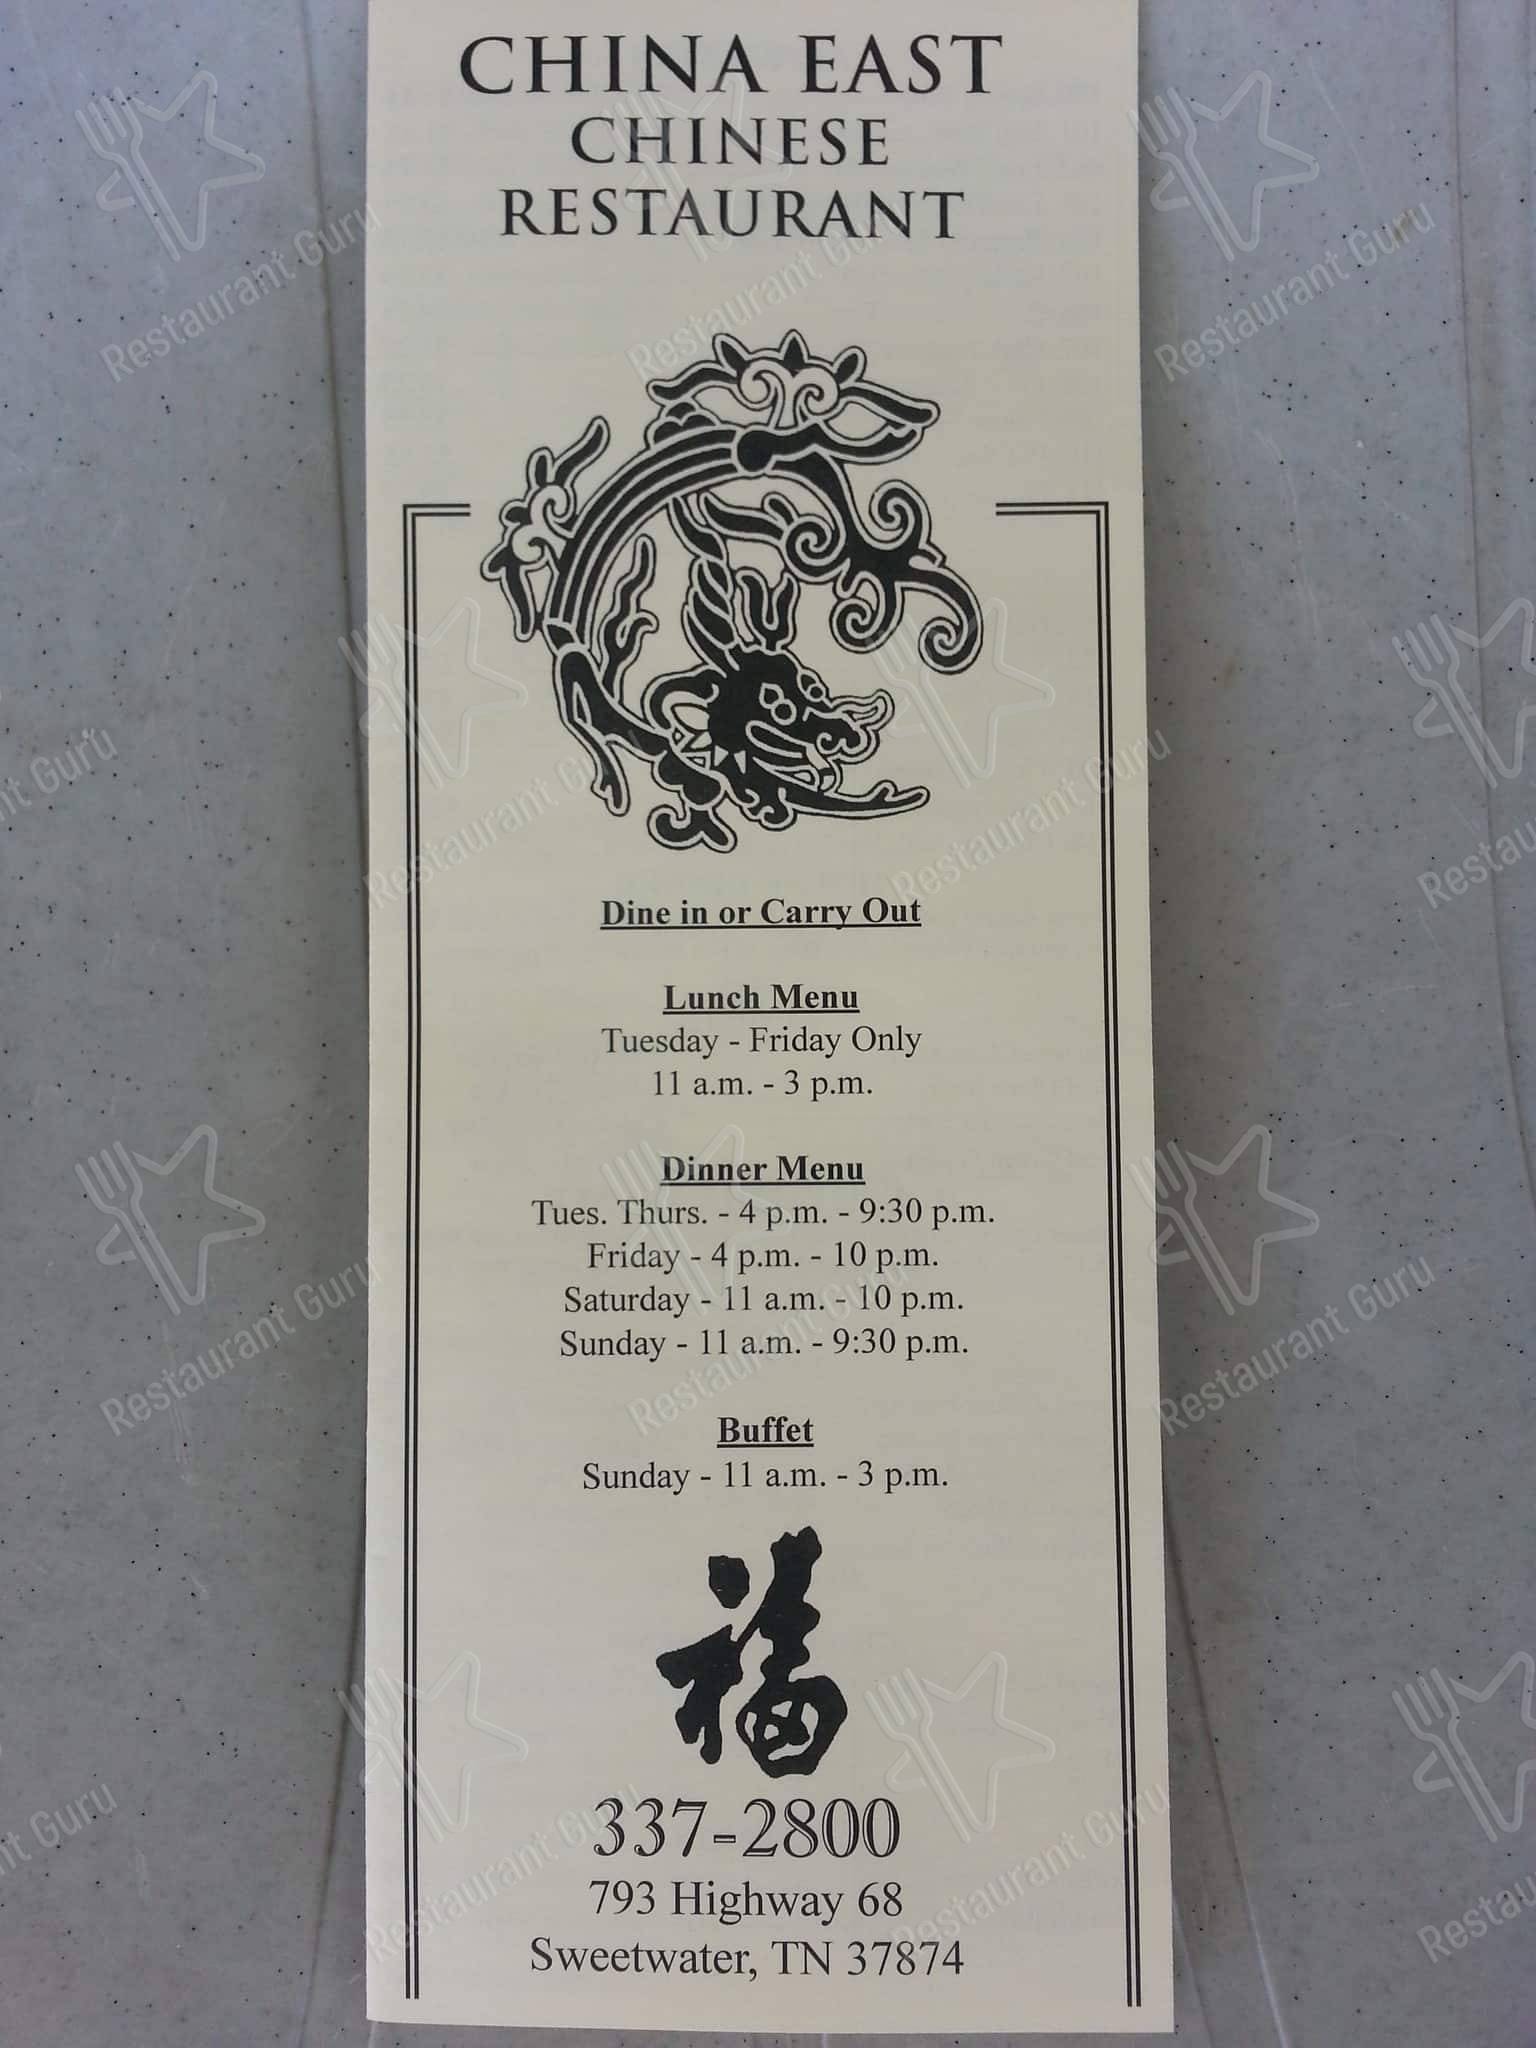 CHINA EAST
CHINESE
RESTAURANT
Dine in or Carry Out
Lunch Menu
Tuesday - Friday Only
11 a.m. - 3 p.m.
Dinner Menu
Tues. Thurs. - 4 p.m. - 9:30 p.m.
Friday - 4 p.m. - 10 p.m.
Saturday - 11 a.m. - 10 p.m.
Sunday - 11 a.m. - 9:30 p.m.
Buffet
Sunday - 11 a.m. - 3 p.m.
福
337-2800
793 Highway 68
Sweetwater, TN 37874
Restaurant Guru